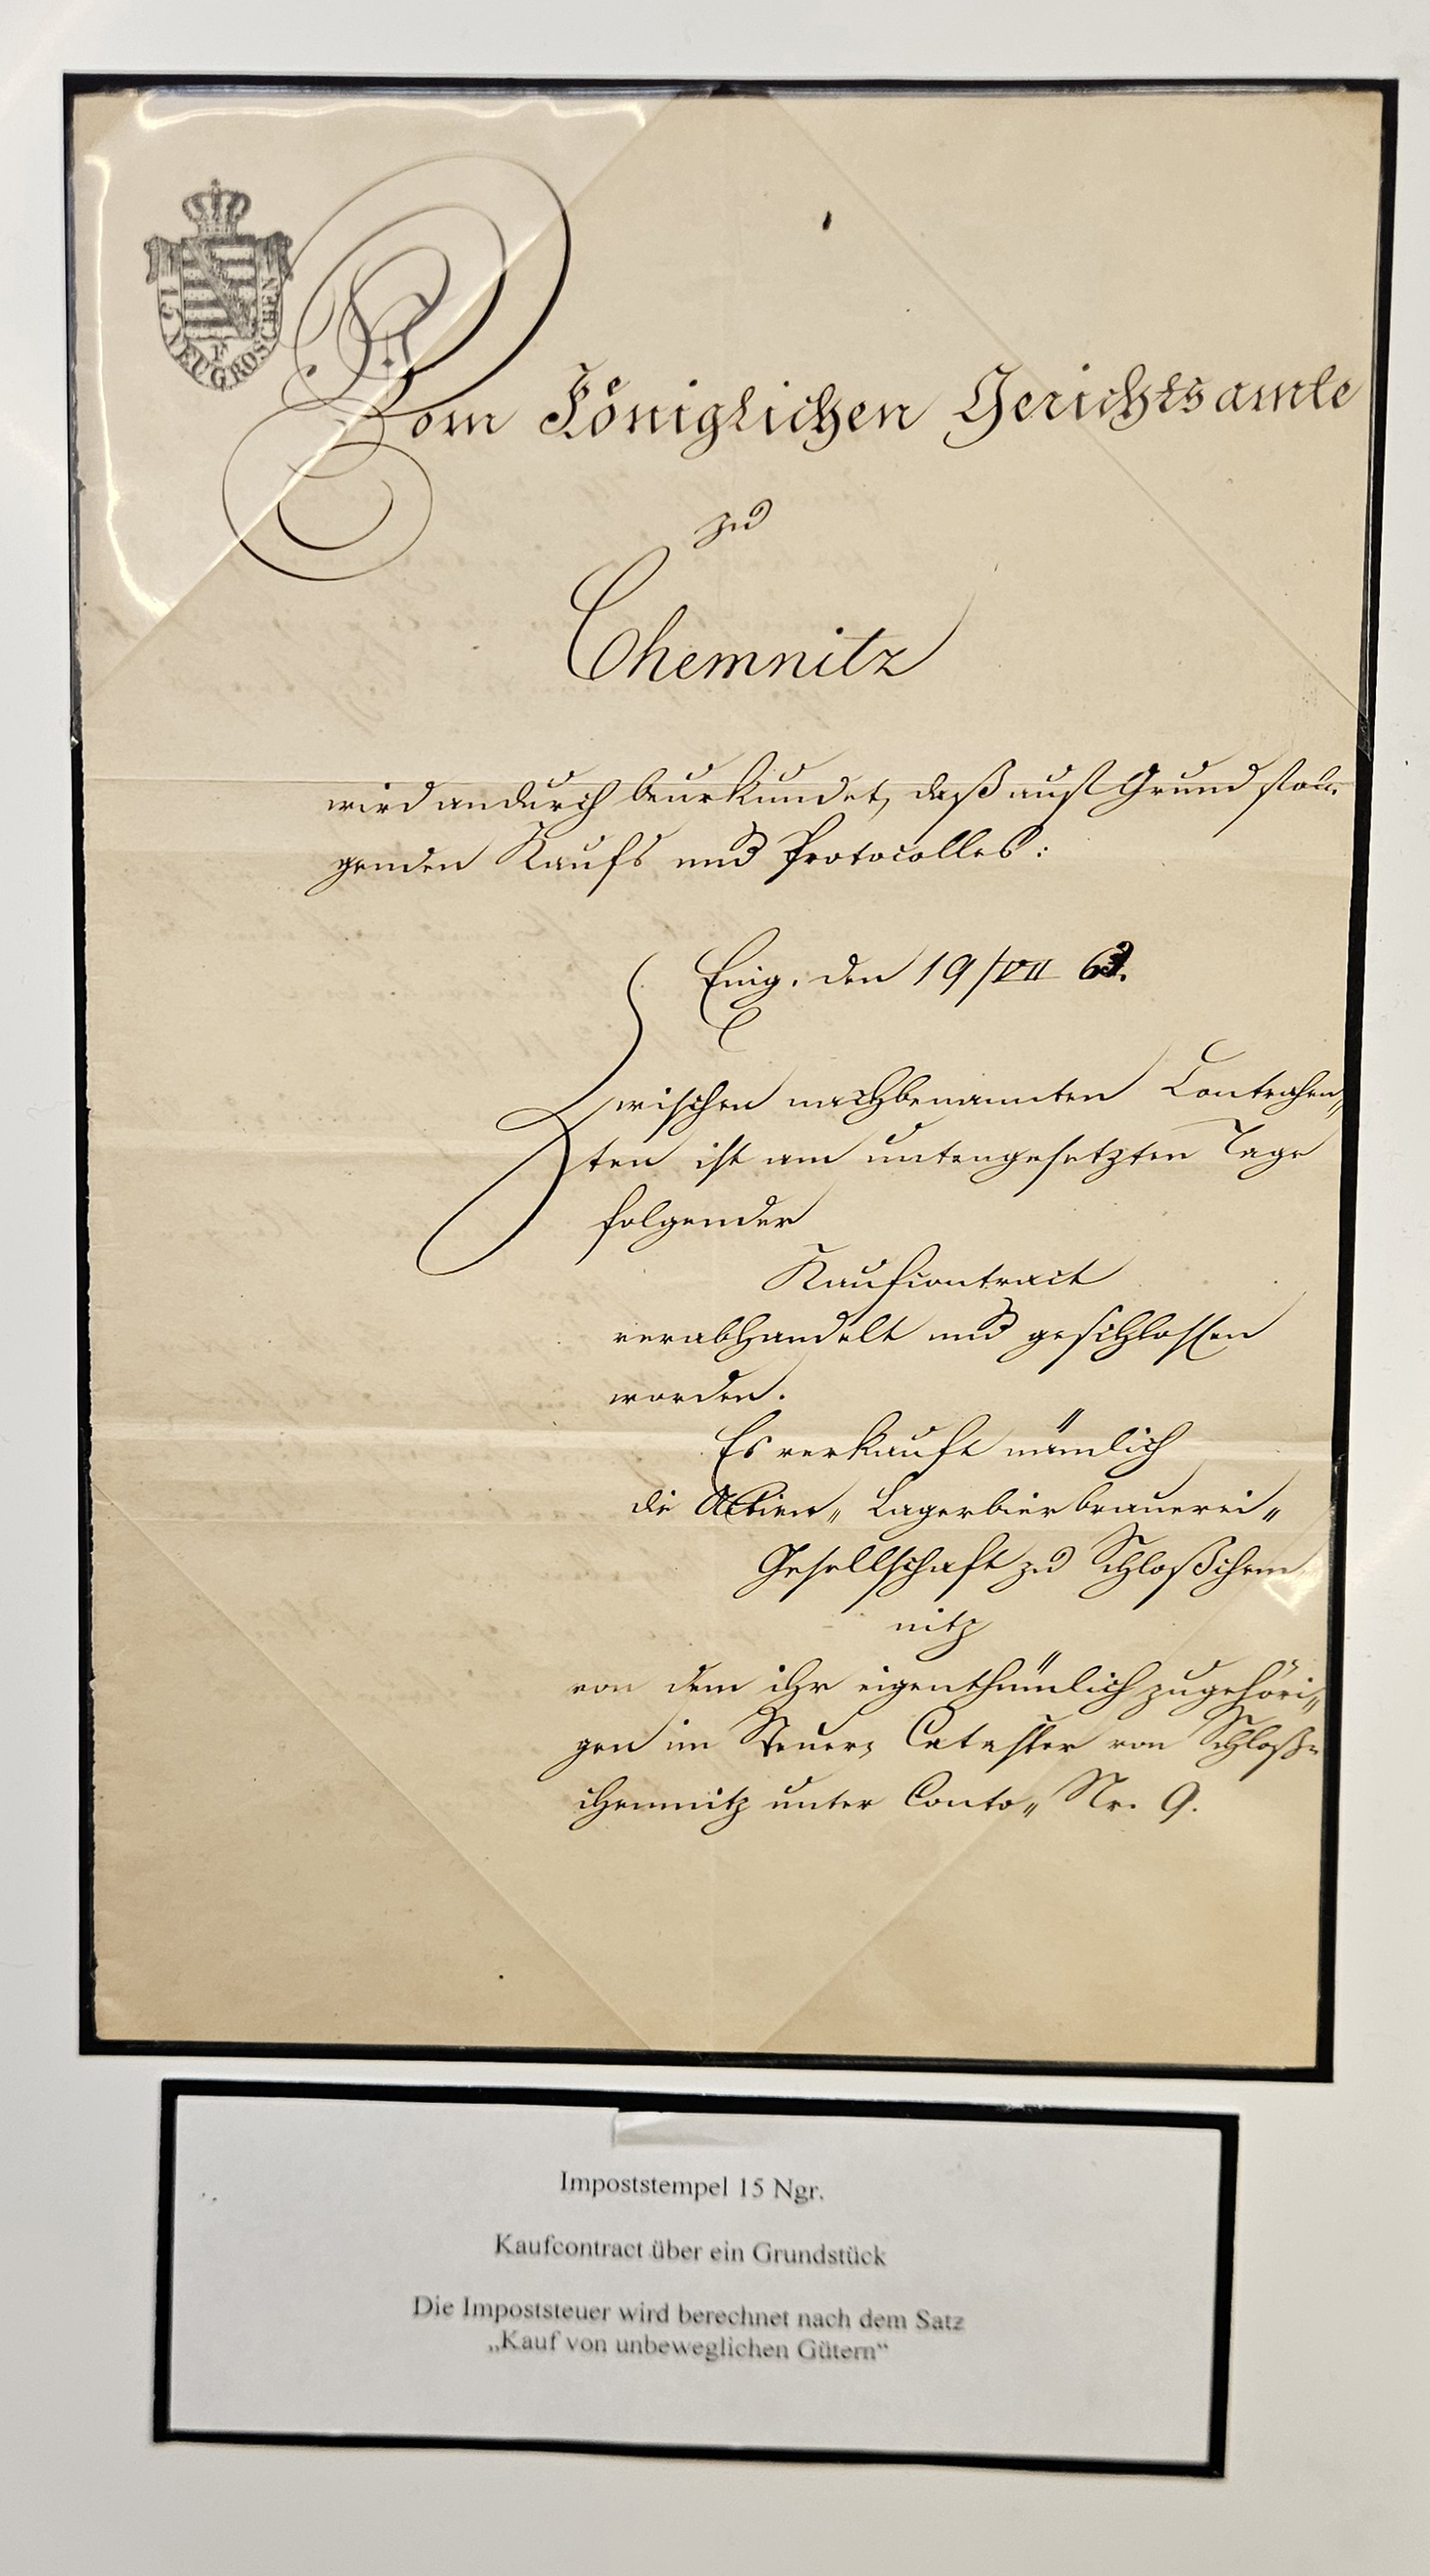 15 NEUGROSCHEN
Vom Königlichen Gerichtsamte
zu
Chemnitz
wird andurch beurkundet, daß auf Grund
genden Kaufs und Protocolles:
Eing. den 19/VII
Zwischen nachbenannten Contrahen„
ten ist am untengesetzten Tage
folgender
Kaufcontract
verabhandelt und geschlossen
worden.
Es verkauft nämlich
die Actien„ Lagerbierbrauerei„
Gesellschaft zu Schloßchem
nitz
von dem ihr eigenthümlich zugehöri„
gen im Steuer= Cataster von Schloß=
chemnitz unter Conto„ Nr. 9.
Impoststempel 15 Ngr.
Kaufcontract über ein Grundstück
Die Impoststeuer wird berechnet nach dem Satz
„Kauf von unbeweglichen Gütern“